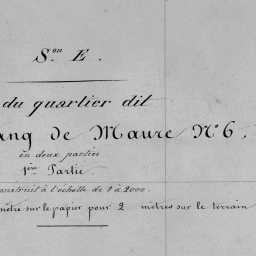 S.on E.
du quartier dit
ang de Maure N°6.
en deux parties
1ère Partie.
construit à l'échelle de 1 à 2000.
mètre sur le papier pour 2 mètres sur le terrain